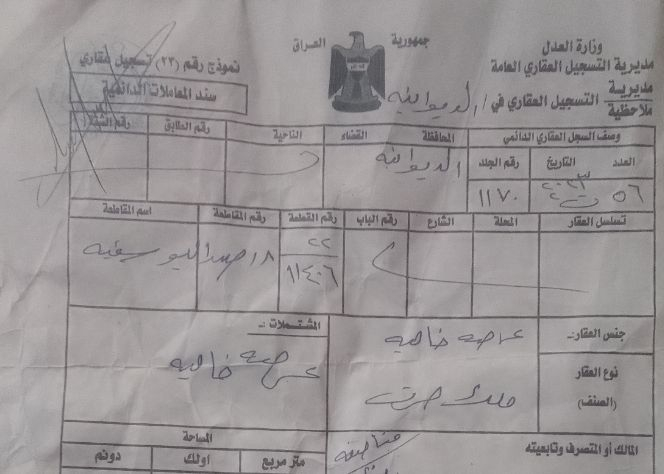 وزارة العدل
مديرية التسجيل العقاري العامة
مديرية
ملاحظية
التسجيل العقاري في / الديوانية
جمهورية العراق
نموذج رقم (٢٣) تسجيل عقاري
سند المعاملات الدائمية
وصف السجل العقاري الدائمي المحافظة القضاء الناحية رقم الطابق رقم الشقة
العدد التاريخ رقم الجلد الديوانية
٥٦ ١١٧٠
تسلسل العقار المحلة الشارع رقم الباب رقم القطعة رقم المقاطعة اسم المقاطعة
٢٢
١١٤٠٦
١٨ صدر اليوسفيه
جنس العقار:ـ عرصه خاليه
المشتملات :ـ
عرصه خاليه
نوع العقار
(الصنف)
ملك صرف
المالك أو المتصرف وتابعيته
المساحة
متر مربع اولك دونم